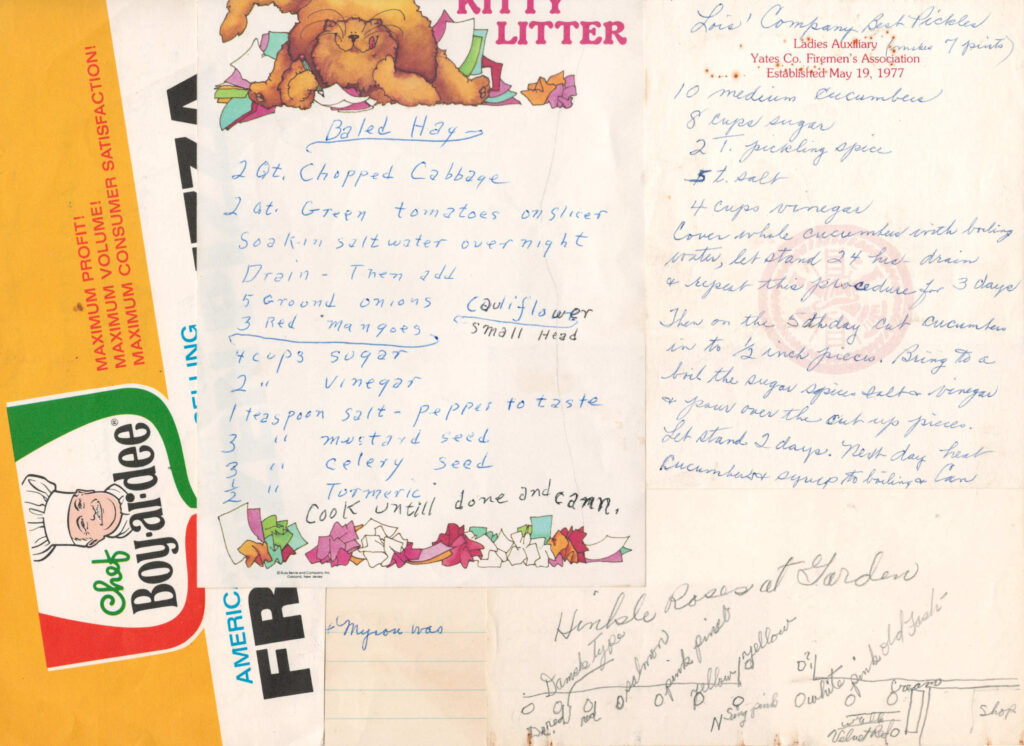 MAXIMUM PROFIT!
MAXIMUM VOLUME!
MAXIMUM CONSUMER SATISFACTION!
Chef
Boy-ar-dee®
AMERICA
SELLING
FR
ZZA
KITTY
LITTER
Baled Hay
2 Qt. Chopped Cabbage
2 Qt. Green tomatoes on slicer
Soak in salt water over night
Drain - Then add
5 Ground onions
Cauliflower
Small Head
3 Red Mangoes
4 cups sugar
2 " vinegar
1 teaspoon salt - pepper to taste
3 " mustard seed
3 " celery seed
2 " Turmeric
Cook untill done and cann.
Lois' Company Best Pickles
(makes 7 pints)
Ladies Auxiliary
Yates Co. Firemen's Association
Established May 19, 1977
10 medium cucumbers
8 cups sugar
2 T. pickling spice
5 t. salt
4 cups vinegar
Cover whole cucumbers with boiling
water, let stand 24 hrs. drain
& repeat this procedure for 3 days
Then on the 5th day cut cucumbers
in to 1/2 inch pieces. Bring to a
boil the sugar spice salt & vinegar
& pour over the cut up pieces.
Let stand 2 days. Next day heat
cucumbers & syrup to boiling & Can
Myron was
Hinkle Roses at Garden
Type
red
salmon
pink
yellow/yellow
pink
white
pink old
walk
Velvet Red
Shop